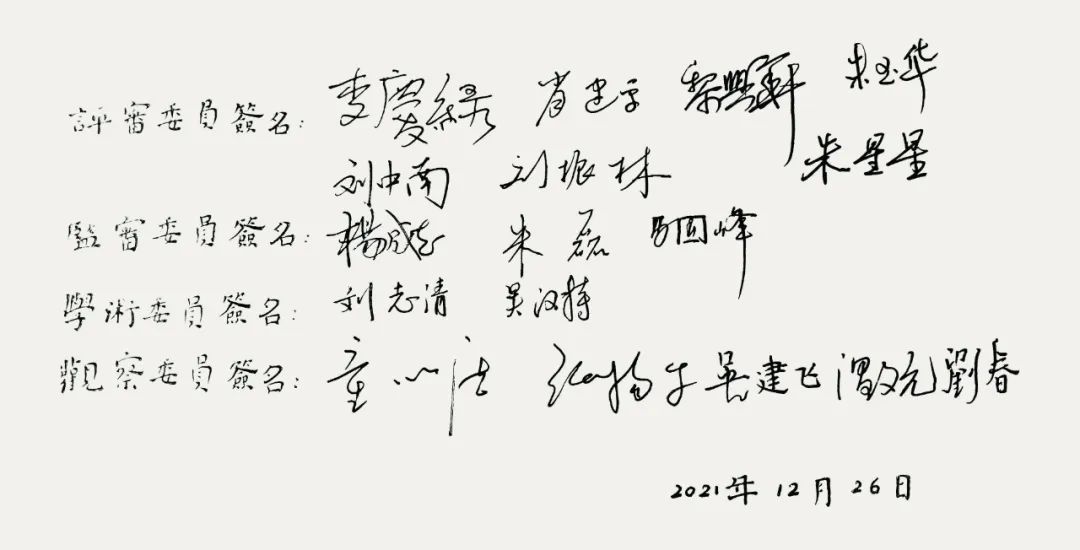 評審委員簽名： 李慶綠 肖建宇 黎興軒 朱玉华
刘中南 刘振林 朱星星
監審委員簽名： 楊成志 朱磊 马国峰
學術委員簽名： 刘志清 吴汉樗
觀察委員簽名： 童心 吴建飞 劉春
2021年12月26日